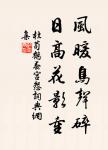 風暖鳥聲碎
日高花影重
杜荀鶴春宮怨詞典網
集